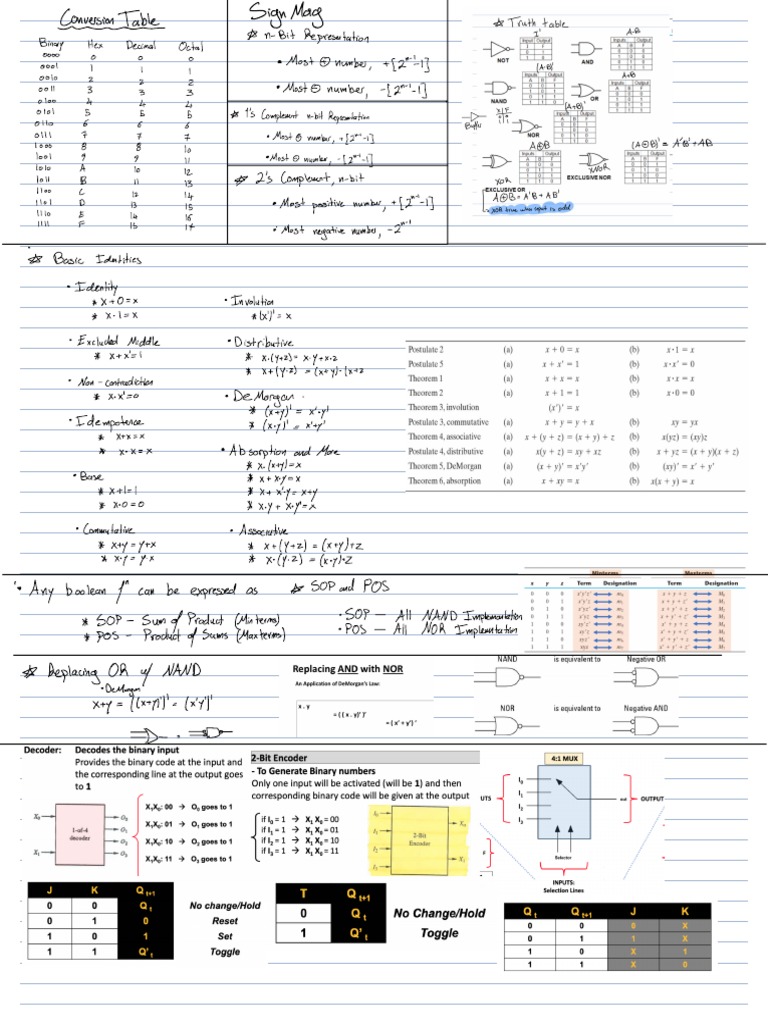 Conversion Table
Binary Hex Decimal Octal
0000 0 0 0
0001 1 1 1
0010 2 2 2
0011 3 3 3
0100 4 4 4
0101 5 5 5
0110 6 6 6
0111 7 7 7
1000 8 8 10
1001 9 9 11
1010 A 10 12
1011 B 11 13
1100 C 12 14
1101 D 13 15
1110 E 14 16
1111 F 15 17
Sign Mag
n-Bit Representation
• Most ⊕ number, +[2ⁿ⁻¹-1]
• Most ⊖ number, -[2ⁿ⁻¹-1]
1's Complement n-bit Representation
• Most ⊕ number, +[2ⁿ⁻¹-1]
• Most ⊖ number, -[2ⁿ⁻¹-1]
2's Complement, n-bit
• Most positive number, +[2ⁿ⁻¹-1]
• Most negative number, -2ⁿ⁻¹
Truth table
NOT
AND
NAND
OR
NOR
XOR
XNOR
EXCLUSIVE NOR
EXCLUSIVE OR
A⊕B = A'B + AB'
(A⊕B)' = A'B' + AB
Basic Identities
• Identity
x+0=x
x·1=x
• Excluded Middle
x+x'=1
• Non-contradiction
x·x'=0
• Idempotence
x+x=x
x·x=x
• Base
x+1=1
x·0=0
• Commutative
x+y=y+x
x·y=y·x
• Involution
(x')'=x
• Distributive
x·(y+z)=x·y+x·z
x+(y·z)=(x+y)·(x+z
• DeMorgan
(x+y)'=x'·y'
(x·y)'=x'+y'
• Absorption and More
x·(x+y)=x
x+x·y=x
x+x'·y=x+y
x·y+x·y'=x
• Associative
x+(y+z)=(x+y)+z
x·(y·z)=(x·y)·z
Postulate 2 (a) x + 0 = x (b) x·1 = x
Postulate 5 (a) x + x' = 1 (b) x·x' = 0
Theorem 1 (a) x + x = x (b) x·x = x
Theorem 2 (a) x + 1 = 1 (b) x·0 = 0
Theorem 3, involution (x')' = x
Postulate 3, commutative (a) x + y = y + x (b) xy = yx
Theorem 4, associative (a) x + (y + z) = (x + y) + z (b) x(yz) = (xy)z
Postulate 4, distributive (a) x(y + z) = xy + xz (b) x + yz = (x + y)(x + z)
Theorem 5, DeMorgan (a) (x + y)' = x'y' (b) (xy)' = x' + y'
Theorem 6, absorption (a) x + xy = x (b) x(x + y) = x
Any boolean fⁿ can be expressed as SOP and POS
SOP - Sum of Product (Minterms)
POS - Product of Sums (Maxterms)
• SOP - All NAND Implementation
• POS - All NOR Implementation
Minterms Maxterms
x y z Term Designation Term Designation
Replacing OR w/ NAND
• DeMorgan
x+y = ((x+y)')' = (x'y')'
Replacing AND with NOR
An Application of DeMorgan's Law:
x . y
= ( ( x . y)' )'
= ( x' + y' ) '
NAND is equivalent to Negative OR
NOR is equivalent to Negative AND
Decoder: Decodes the binary input
Provides the binary code at the input and
the corresponding line at the output goes
to 1
X₀
X₁
1-of-4
decoder
O₀
O₁
O₂
O₃
X₁X₀: 00 → O₀ goes to 1
X₁X₀: 01 → O₁ goes to 1
X₁X₀: 10 → O₂ goes to 1
X₁X₀: 11 → O₃ goes to 1
2-Bit Encoder
- To Generate Binary numbers
Only one input will be activated (will be 1) and then
corresponding binary code will be given at the output
if I₀ = 1 → X₁ X₀ = 00
if I₁ = 1 → X₁ X₀ = 01
if I₂ = 1 → X₁ X₀ = 10
if I₃ = 1 → X₁ X₀ = 11
2-Bit
Encoder
X₀
X₁
4:1 MUX
I₀
I₁
I₂
I₃
UTS
out
OUTPUT
Selector
INPUTS:
Selection Lines
J K Q t+1
0 0 Q t No change/Hold
0 1 0 Reset
1 0 1 Set
1 1 Q' t Toggle
T Q t+1
0 Q t No Change/Hold
1 Q' t Toggle
Q t Q t+1 J K
0 0 0 X
0 1 1 X
1 0 X 1
1 1 X 0